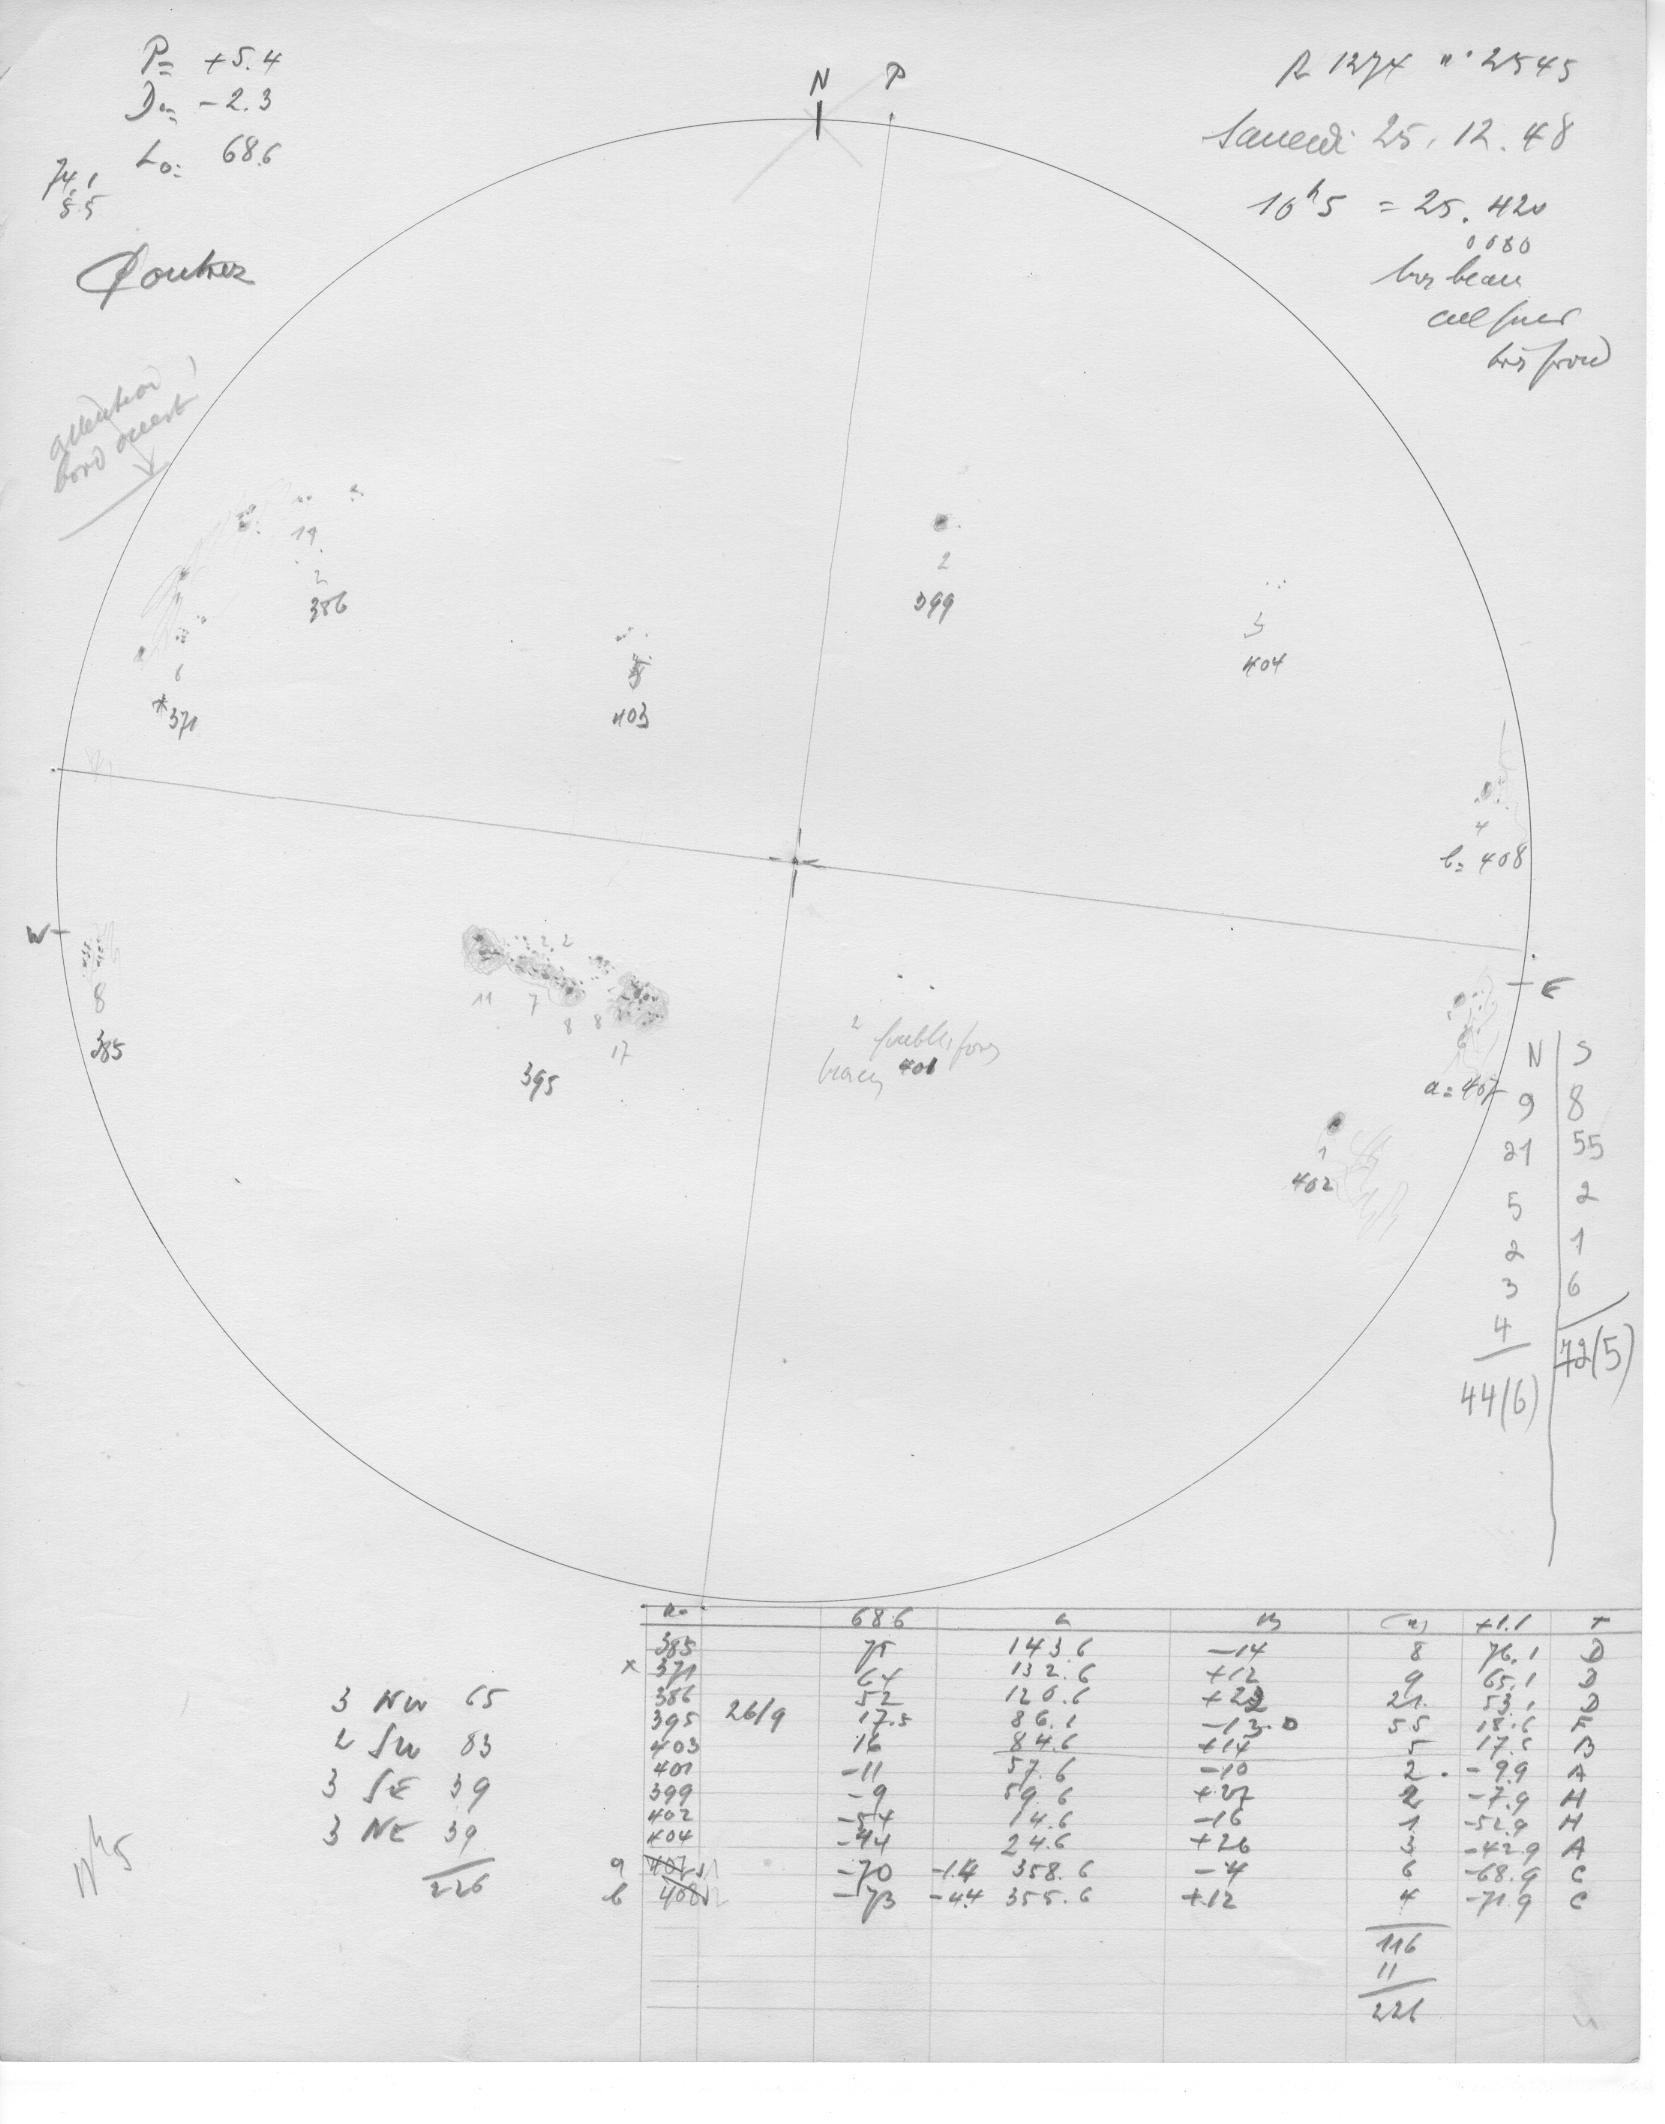 P= +5.4
D= -2.3
Lo= 68.6
74.1
5.5
N
P
R 1274 n° 2545
Samedi 25.12.48
10h5 = 25.420
très beau
très froid
attention
bord ouest
19
2
386
6
*371
403
2
399
3
404
4
b= 408
W
8
385
2 2
11
7
8
8
17
395
2
401
E
a= 407
1
402
N S
9 8
21 55
5 2
2 1
3 6
4
44(6)
72(5)
68.6 (n) +1.1 T
385 75 143.6 -14 8 76.1 D
x 371 64 132.6 +12 9 65.1 D
386 52 120.6 +22 21 53.1 D
395 26/9 17.5 86.1 -13.0 55 18.6 F
403 16 84.6 +14 5 17.1 B
401 -11 57.6 -10 2 -9.9 A
399 -9 59.6 +27 2 -7.9 H
402 -54 14.6 -16 1 -52.9 H
404 -44 24.6 +26 3 -42.9 A
a 407 -70 -1.4 358.6 -4 6 -68.9 C
b 408 -73 -4.4 355.6 +12 4 -71.9 C
116
11
226
3 NW 65
2 SW 83
3 SE 39
3 NE 39
226
11h5